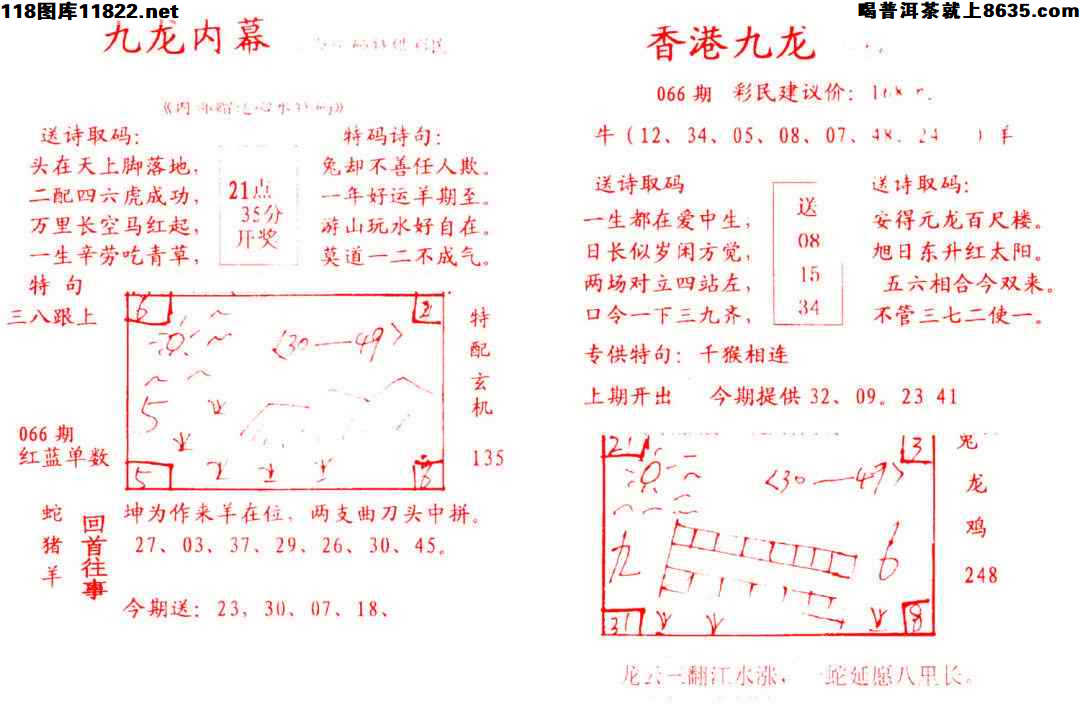 118图库11822.net
喝普洱茶就上8635.com
九龙内幕
送诗取码：
头在天上脚落地，
二配四六虎成功，
万里长空马红起，
一生辛劳吃青草，
21点
35分
开奖
特码诗句：
兔却不善任人欺。
一年好运羊期至。
游山玩水好自在。
莫道一二不成气。
特句
三八跟上
6
2
〈30—49〉
5
5
8
特配玄机
135
066期
红蓝单数
蛇猪羊
回首往事
坤为作来羊在位，两支曲刀头中拼。
27、03、37、29、26、30、45。
今期送：23、30、07、18、
香港九龙
066期 彩民建议价：168
牛（12、34、05、08、07、48、24 ）羊
送诗取码
一生都在爱中生，
日长似岁闲方觉，
两场对立四站左，
口令一下三九齐，
送
08
15
34
送诗取码：
安得元龙百尺楼。
旭日东升红太阳。
五六相合今双来。
不管三七二使一。
专供特句：千猴相连
上期开出 今期提供32、09。23 41
21
3
〈30—49〉
九
6
31
8
兔
龙
鸡
248
龙云三翻江水涨，一蛇延愿八里长。